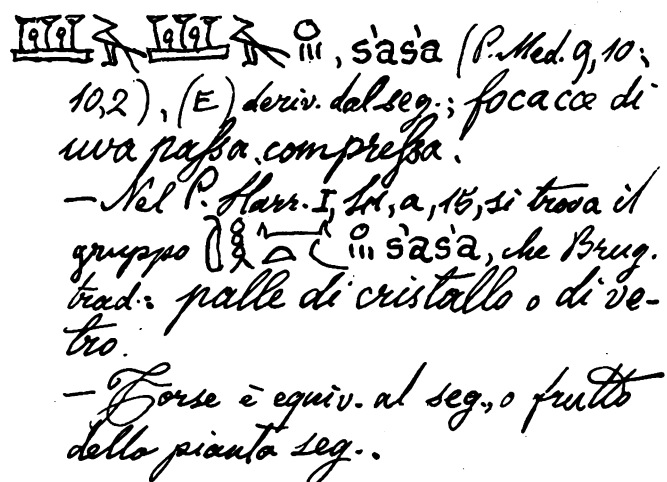 , šaša (P. Med. 9,10;
10,2), (E) deriv. dal seg.; focacce di
uva passa compressa.
— Nel P. Harr. I, a, 15, si trova il
gruppo šaša, che Brug.
trad.: palle di cristallo o di ve-
tro.
— Forse è equiv. al seg., o frutto
della pianta seg..